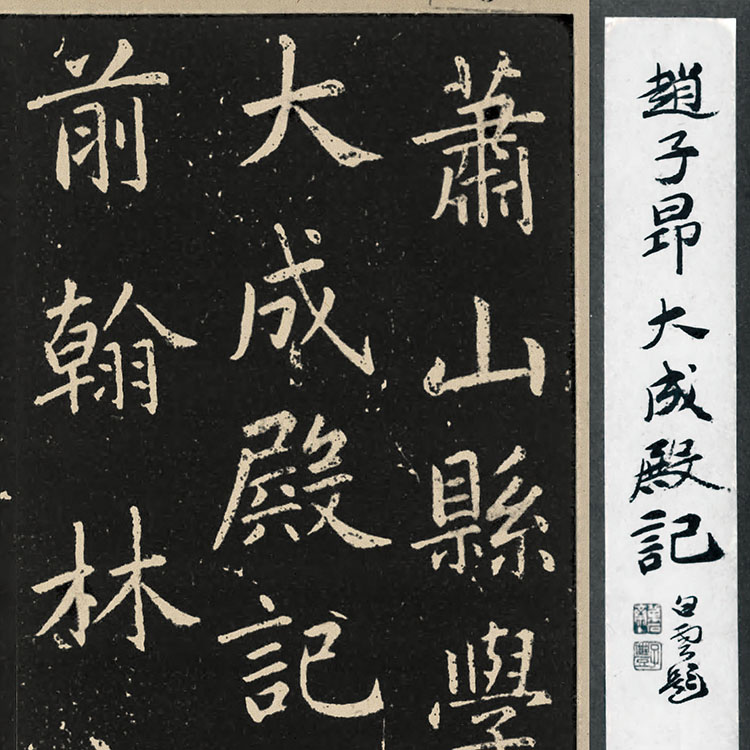 趙子昂大成殿記
白雲題
蕭山縣學
大成殿記
前翰林